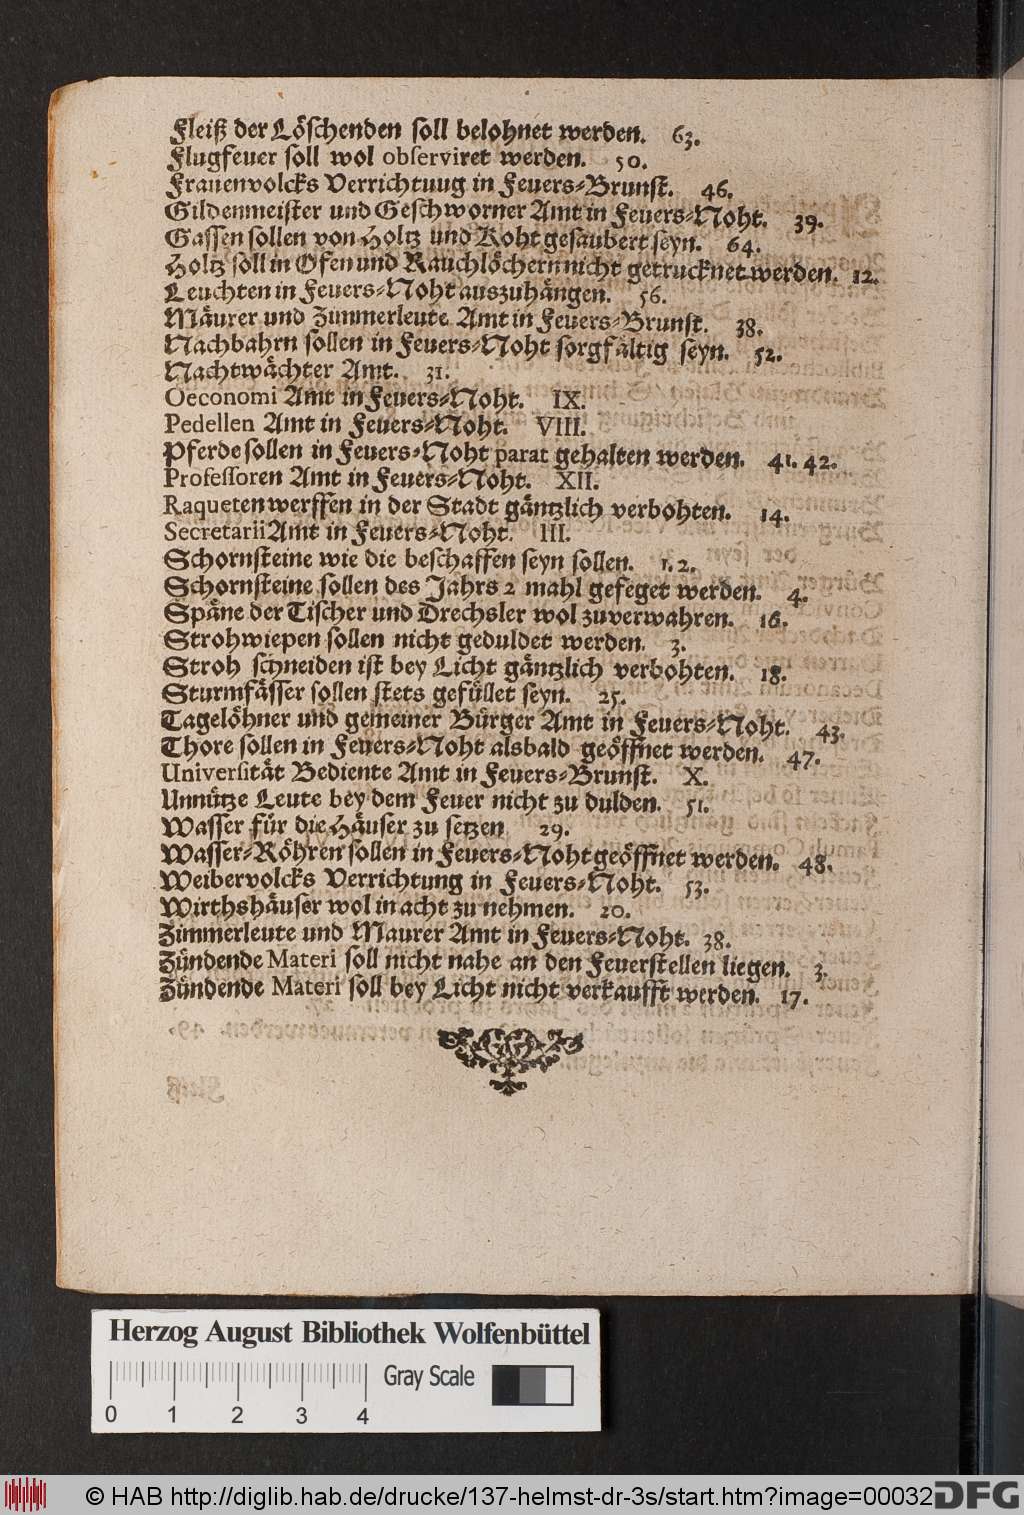 Fleiß der Löschenden soll belohnet werden. 63.
Flugfeuer soll wol observiret werden. 50.
Frauenvolcks Verrichtuug in Feuers-Brunst. 46.
Gildenmeister und Geschworner Amt in Feuers-Noht. 39.
Gassen sollen von Holtz und Koht gesaubert seyn. 64.
Holtz soll in Ofen und Rauchlöchern nicht getrucknet werden. 12.
Leuchten in Feuers-Noht auszuhängen. 56.
Mäurer und Zimmerleute Amt in Feuers-Brunst. 38.
Nachbahrn sollen in Feuers-Noht sorgfältig seyn. 52.
Nachtwächter Amt. 31.
Oeconomi Amt in Feuers-Noht. IX.
Pedellen Amt in Feuers-Noht. VIII.
Pferde sollen in Feuers-Noht parat gehalten werden. 41. 42.
Professoren Amt in Feuers-Noht. XII.
Raqueten werffen in der Stadt gäntzlich verbohten. 14.
Secretarii Amt in Feuers-Noht. III.
Schornsteine wie die beschaffen seyn sollen. 1. 2.
Schornsteine sollen des Jahrs 2 mahl gefeget werden. 4.
Späne der Tischer und Drechsler wol zuverwahren. 16.
Strohwiepen sollen nicht geduldet werden. 3.
Stroh schneiden ist bey Licht gäntzlich verbohten. 18.
Sturmfässer sollen stets gefüllet seyn. 25.
Tagelöhner und gemeiner Bürger Amt in Feuers-Noht. 43.
Thore sollen in Feuers-Noht alsbald geöffnet werden. 47.
Universität Bediente Amt in Feuers-Brunst. X.
Unnütze Leute bey dem Feuer nicht zu dulden. 51.
Wasser für die Häuser zu setzen 29.
Wasser-Röhren sollen in Feuers-Noht geöffnet werden. 48.
Weibervolcks Verrichtung in Feuers-Noht. 53.
Wirthshäuser wol in acht zu nehmen. 20.
Zimmerleute und Maurer Amt in Feuers-Noht. 38.
Zündende Materi soll nicht nahe an den Feuerstellen liegen. 3.
Zündende Materi soll bey Licht nicht verkaufft werden. 17.
Herzog August Bibliothek Wolfenbüttel
Gray Scale
0 1 2 3 4
© HAB http://diglib.hab.de/drucke/137-helmst-dr-3s/start.htm?image=00032
DFG